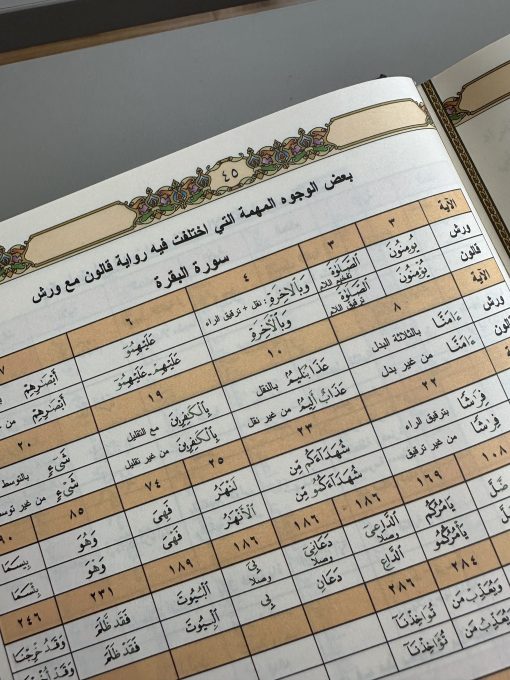 ٤٥
بعض الوجوه المهمة التي اختلفت فيه رواية قالون مع ورش
سورة البقرة
الآية ٣ ٣ ٤ ٦ ٧
ورش يُومِنُونَ الصَّلَوٰةَ تفخيم اللام وَبِالَاخِرَةِ: نقل + ترقيق الراء عَلَيْهِمُۥٓ أَبْصَٰرِهِمْ
قالون يُؤْمِنُونَ الصَّلَوٰةَ ترقيق اللام وَبِالْأَخِرَةِ عَلَيْهِمْ - عَلَيْهِمُۥٓ أَبْصَٰرِهِمْ
الآية ٨ ١٠ ١٩ ٢٠
ورش ءَامَنَّا بالثلاثة البدل عَذَابٌ اَلِيمٌ بالنقل بِالْكَٰفِرِينَ مع التقليل شَيْءٍ بالتوسط
قالون ءَامَنَّا من غير بدل عَذَابٌ أَلِيمٌ من غير نقل بِالْكَٰفِرِينَ من غير تقليل شَيْءٍ من غير توسط
٢٢ ٢٣ ٢٥ ٧٤ ٨٥ ٩٠
فِرَٰشًا بترقيق الراء شُهَدَآءَكُم مِّن اَلَانْهَٰرُ فَهِيَ وَهُوَ بِيسَمَا
فِرَٰشًا من غير ترقيق شُهَدَآءَكُمُۥ مِّن اَلْأَنْهَٰرُ فَهْيَ وَهْوَ بِئْسَمَا
١٠٨ ١٦٩ ١٨٦ ١٨٦ ١٨٦ ١٨٩ ٢٣١ ٢٤٦
يَامُرُكُم اَلدَّاعِۦ وصلا دَعَانِۦ وصلا بِيَ وصلا اَلْبُيُوتَ فَقَد ظَّلَمَ وَقَدُ خْرِجْنَا
يَأْمُرُكُمُۥ اَلدَّاعِ دَعَانِ بِي اَلْبِيُوتَ فَقَدْ ظَلَمَ وَقَدْ أُخْرِجْنَا
٢٨٤ ٢٨٦
وَيُعَذِّبْ مَن تُوَاخِذْنَآ
وَيُعَذِّب مَّن تُؤَاخِذْنَآ